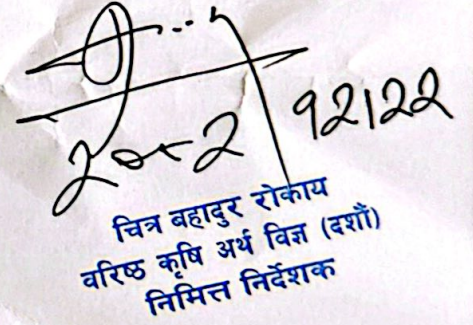 २०८२/१२/२२
चित्र बहादुर रोकाय
वरिष्ठ कृषि अर्थ विज्ञ (दशौं)
निमित्त निर्देशक